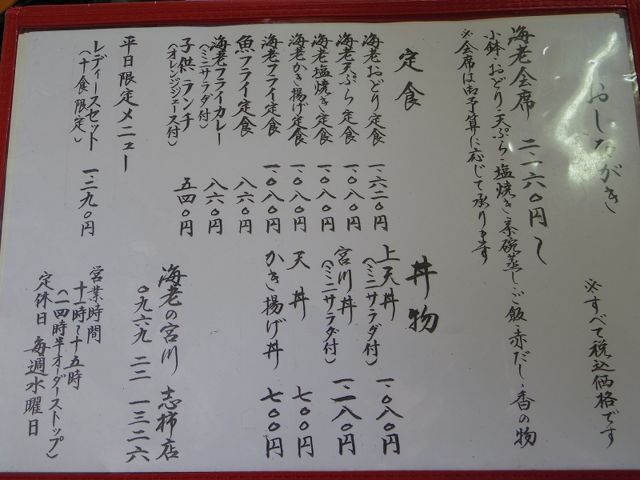 おしながき
※すべて税込価格です
海老会席 二・一六〇円〜
小鉢・おどり・天ぷら・塩焼き・茶碗蒸し・ご飯・赤だし・香の物
※会席は御予算に応じて承ります
定食
海老おどり定食 一・六二〇円
海老天ぷら定食 一・〇八〇円
海老塩焼き定食 一・〇八〇円
海老かき揚げ定食 一・〇八〇円
海老フライ定食 一・〇八〇円
魚フライ定食 八六〇円
海老フライカレー 八六〇円
(ミニサラダ付)
子供ランチ 五四〇円
(オレンジジュース付)
平日限定メニュー
レディースセット 一二九〇円
(十食限定)
丼物
上天丼 一・〇八〇円
(ミニサラダ付)
宮川丼 一・一八〇円
(ミニサラダ付)
天丼 七〇〇円
かき揚げ丼 七〇〇円
海老の宮川 志柿店
〇九六九 二二 一三二六
営業時間
十一時〜十五時
(一四時半オーダーストップ)
定休日 毎週水曜日